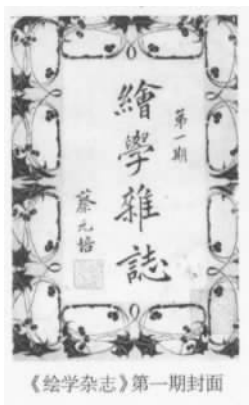 第一期
繪學雜誌
蔡元培
《绘学杂志》第一期封面